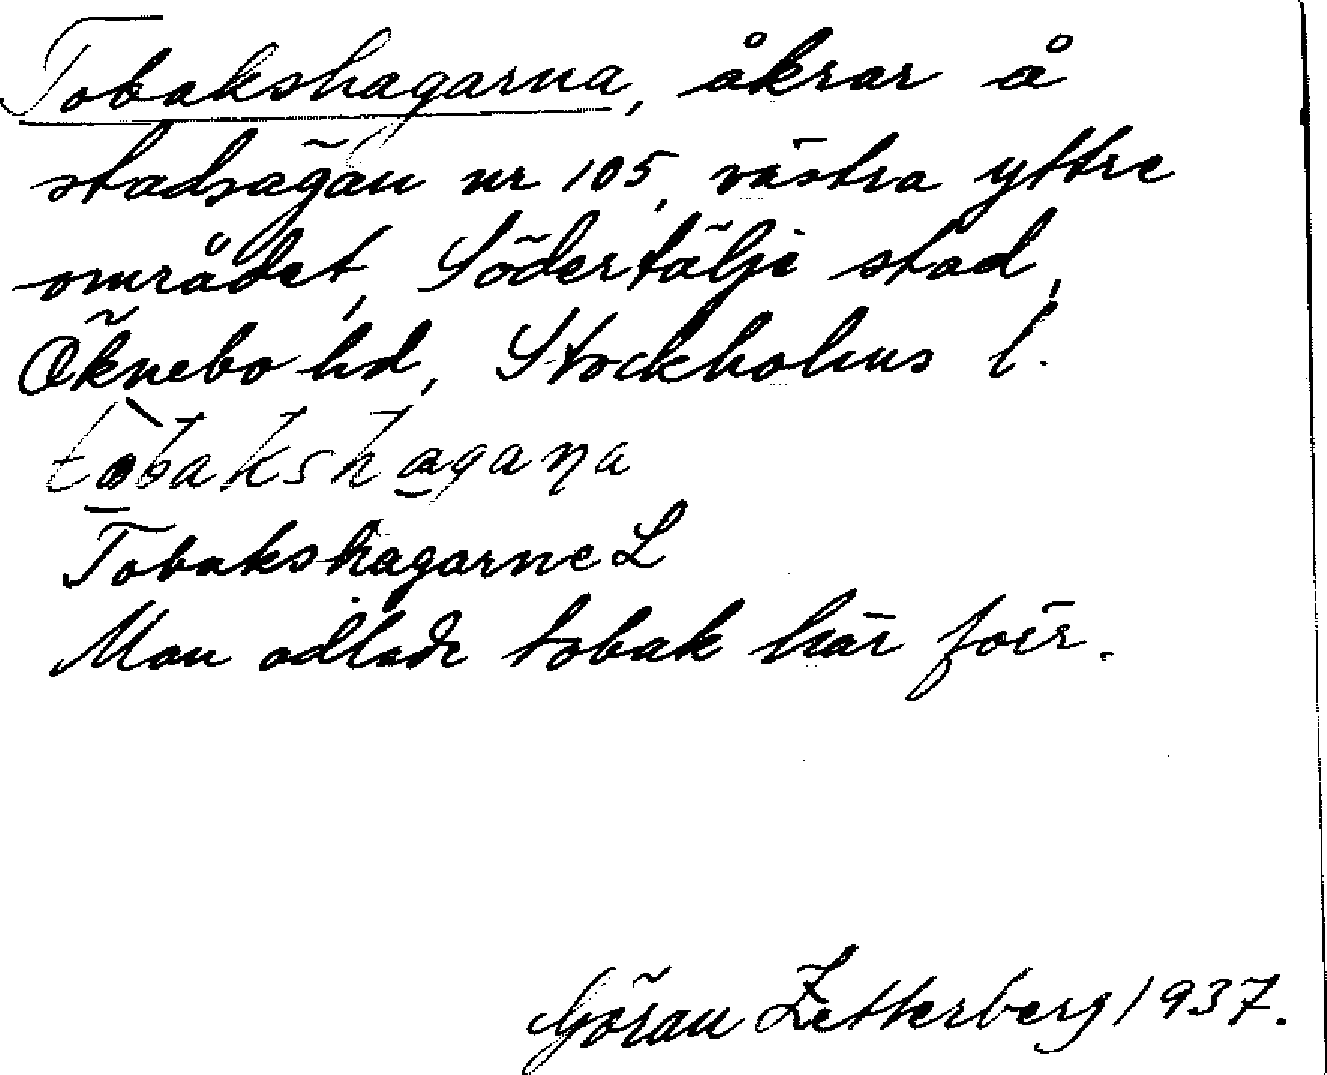 Tobakshagarna, åkrar å
stadsägan nr 105, västra yttre
området, Södertälje stad,
Öknebo hd, Stockholms l.
tòbakshagaṇa
Tobakshagarne L
Man odlade tobak här förr.
Göran Zetterberg 1937.